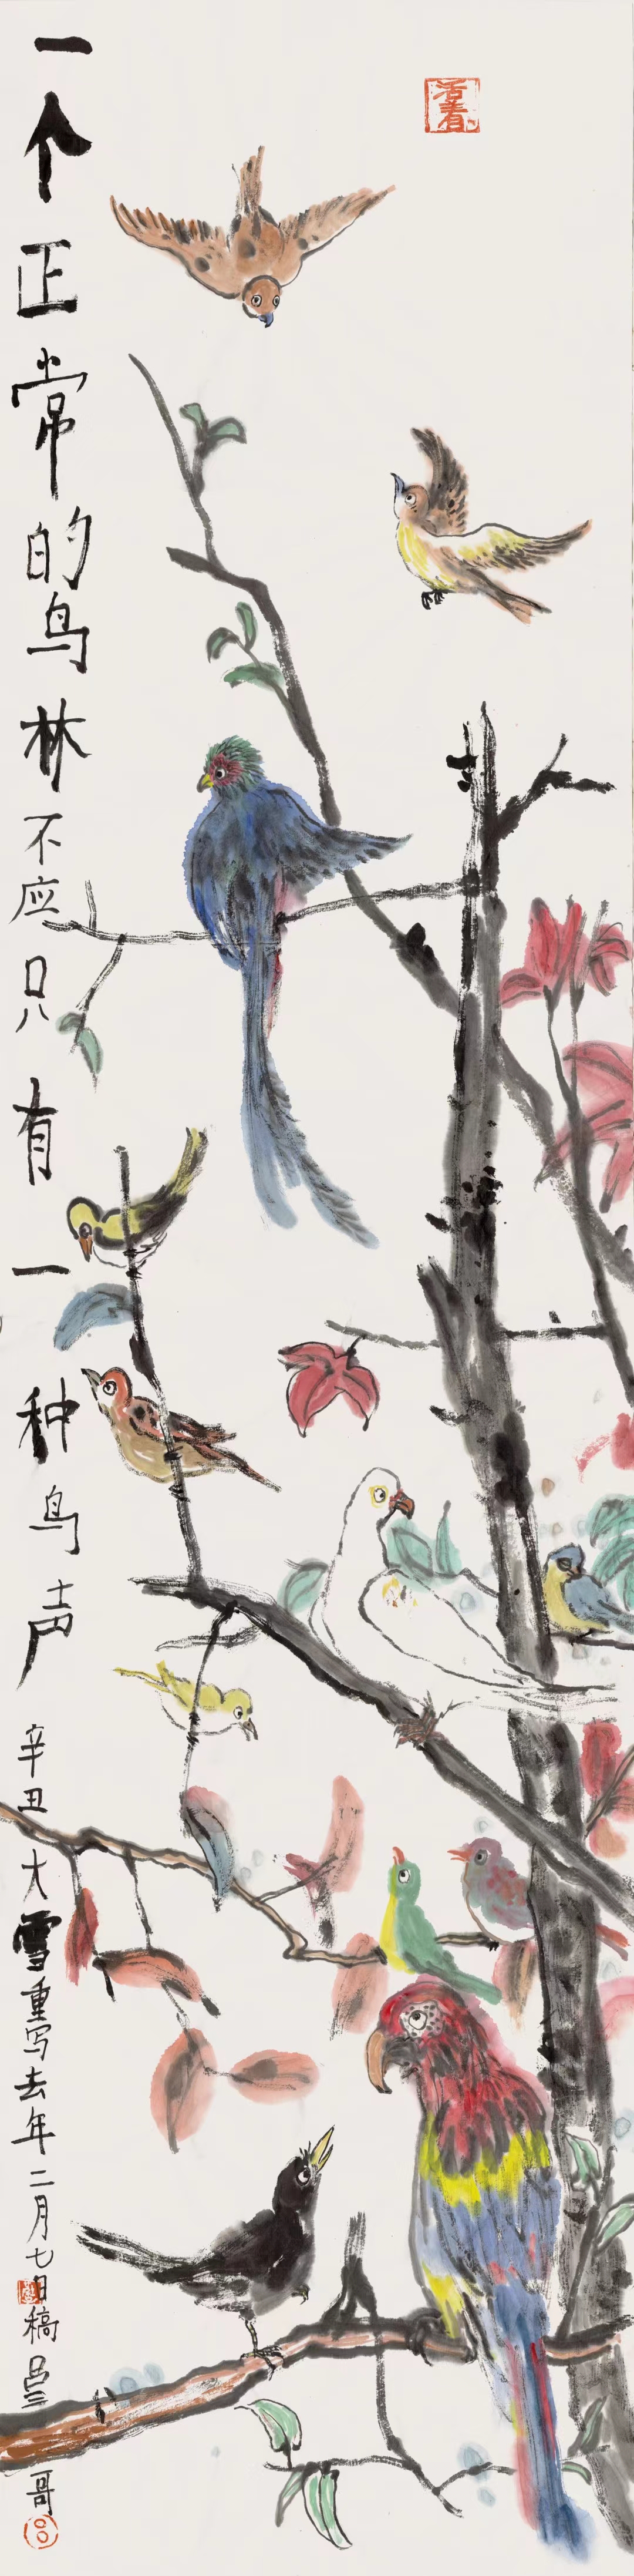 一个正常的鸟林不应只有一种鸟声
辛丑大雪重写去年二月七日稿 吕三
哥
活着